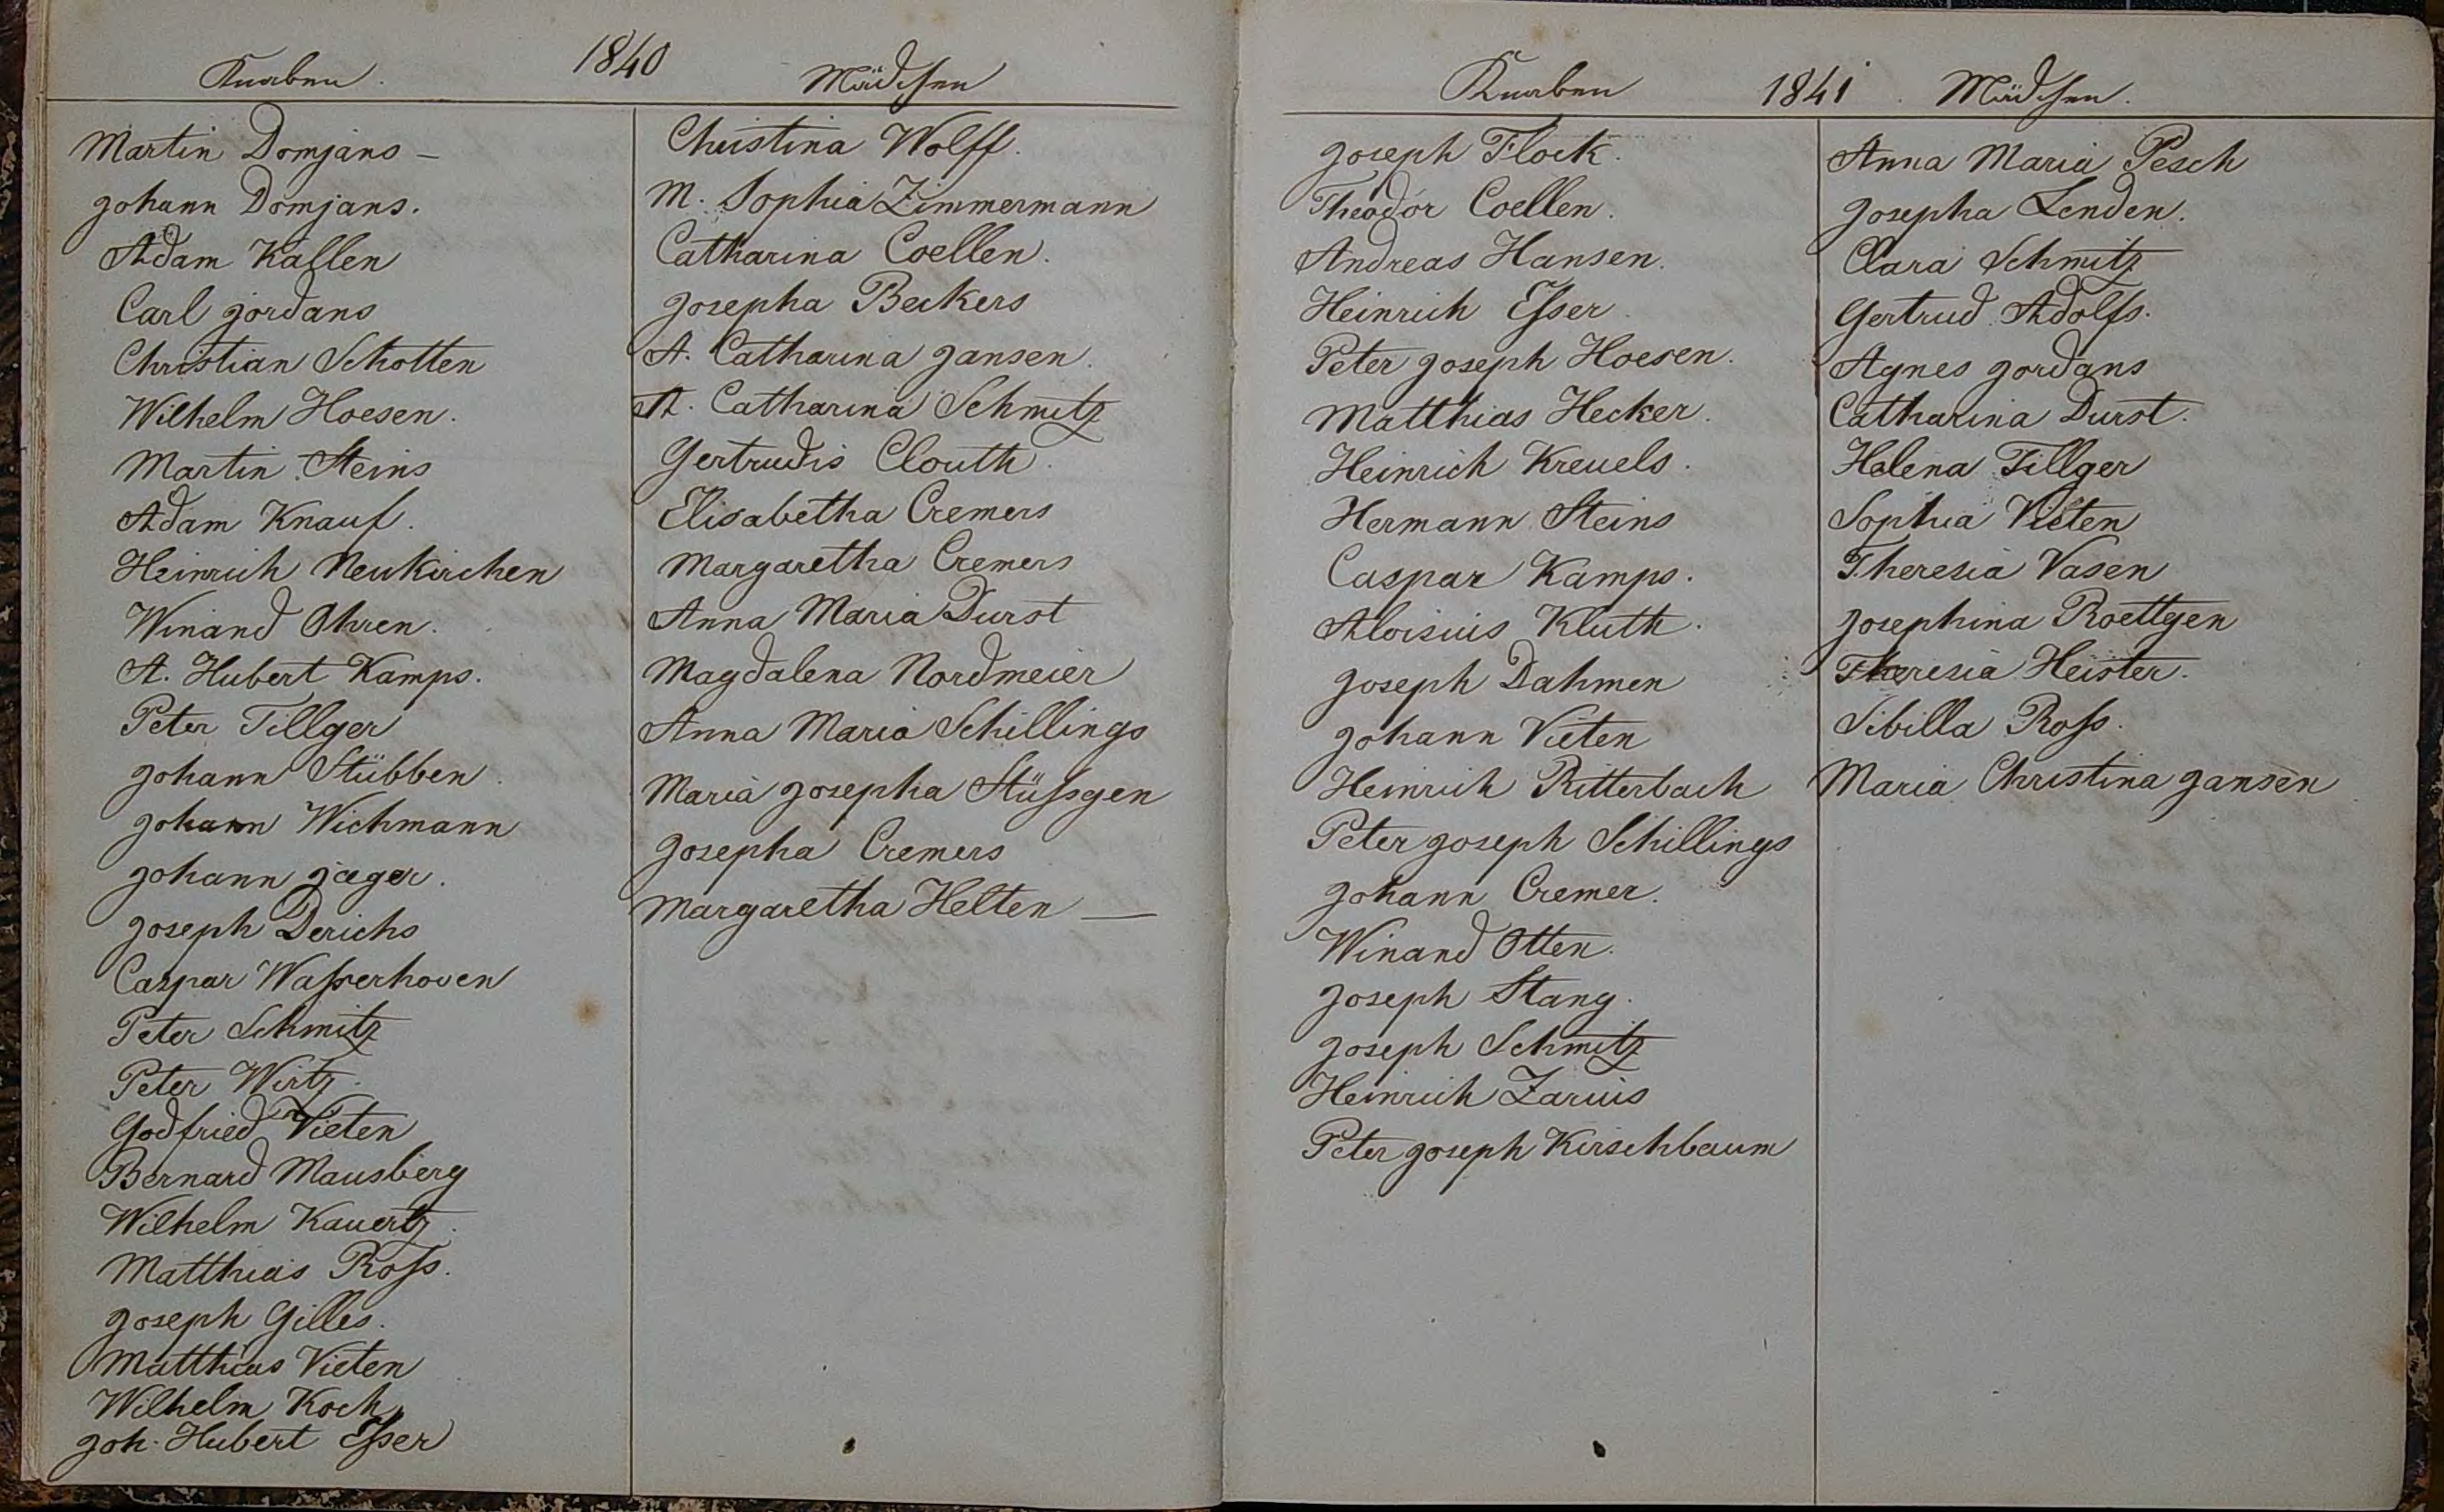 1840
Knaben.
Martin Domjans –
Johann Domjans.
Adam Kallen
Carl Jordans
Christian Schotten
Wilhelm Hoesen.
Martin Steins
Adam Knauf.
Heinrich Neukirchen
Winand Ohren.
A. Hubert Kamps.
Peter Tillger
Johann Stübben.
Johann Wichmann
Johann Jaeger.
Joseph Derichs
Caspar Wasserhoven
Peter Schmitz
Peter Wirtz.
Godfried Vieten
Bernard Mausberg
Wilhelm Kauertz.
Matthias Ross.
Joseph Gilles.
Matthias Vieten
Wilhelm Koch
Joh. Hubert Esser
Mädchen
Christina Wolff.
M. Sophia Zimmermann
Catharina Coellen.
Josepha Beckers
A. Catharina Jansen.
A. Catharina Schmitz
Gertrudis Clouth.
Elisabetha Cremers
Margaretha Cremers
Anna Maria Durst
Magdalena Nordmeier
Anna Maria Schillings
Maria Josepha Stüssgen
Josepha Cremers
Margaretha Helten —
1841.
Knaben
Joseph Flock.
Theodor Coellen.
Andreas Hansen.
Heinrich Esser.
Peter Joseph Hoesen.
Matthias Hecker.
Heinrich Kreuels.
Hermann Steins
Caspar Kamps.
Aloisius Kluth.
Joseph Dahmen
Johann Vieten
Heinrich Ritterbach
Peter Joseph Schillings
Johann Cremer.
Winand Otten.
Joseph Stang.
Joseph Schmitz
Heinrich Zarius
Peter Joseph Kirschbaum
Mädchen.
Anna Maria Pesch
Josepha Lenden.
Clara Schmitz
Gertrud Adolfs.
Agnes Jordans
Catharina Durst.
Helena Tillger
Sophia Vieten
Theresia Vasen
Josephina Roettgen
Theresia Heister.
Sibilla Ross.
Maria Christina Jansen